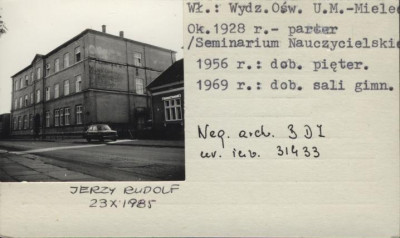 Wł.: Wydz.Ośw. U.M.-Mielec
Ok.1928 r.- parter
/Seminarium Nauczycielskie
1956 r.: dob. pięter.
1969 r.: dob. sali gimn.
Neg. arch. 3 D I
nr. inw. 31433
JERZY RUDOLF
23 X 1985